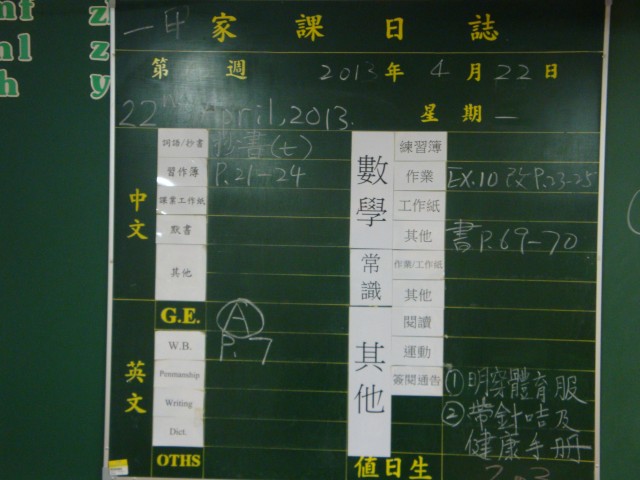 nf
nl
h
z
z
y
一甲 家課日誌
第 週 2013年4月22日
22nd April, 2013. 星期一
中文
詞語/抄書 抄書(七)
習作簿 P.21-24
課業工作紙
默書
其他
英文
G.E. A
W.B. P.7
Penmanship
Writing
Dict.
OTHS
數學
練習簿
作業 EX.10 改P.23-25
工作紙
其他 書P.69-70
常識
作業/工作紙
其他
其他
閱讀
運動
簽閱通告 ①明穿體育服
②帶針咭及
健康手冊
值日生